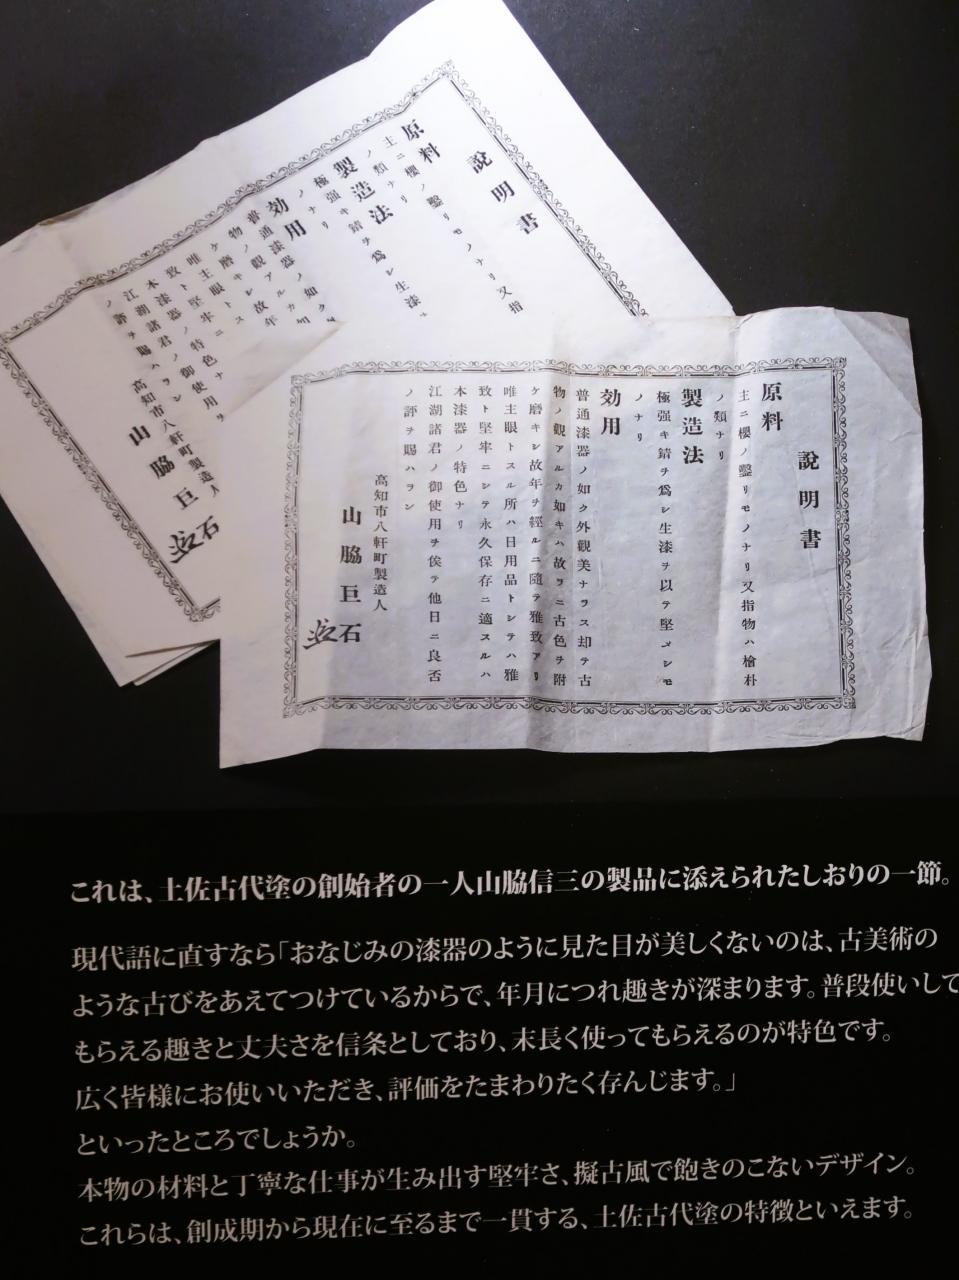 説明書
原料
主ニ櫻ノ鑿リモノナリ又指
ノ類ナリ
製造法
極强キ錆ヲ爲シ生漆ヲ
ノナリ
効用
普通漆器ノ如ク
物ノ觀アルカ如
ケ磨キシ故年
唯主眼トス
致ト堅牢ニ
本漆器ノ特色ナリ
江湖諸君ノ御使用ヲ
ノ評ヲ賜ハヲン
高知市八軒町製造人
山脇巨石
説明書
原料
主ニ櫻ノ鑿リモノナリ又指物ハ檜朴
ノ類ナリ
製造法
極强キ錆ヲ爲シ生漆ヲ以テ堅メシモ
ノナリ
効用
普通漆器ノ如ク外觀美ナラス却テ古
物ノ觀アルカ如キハ故ヲニ古色ヲ附
ケ磨キシ故年ヲ經ルニ隨テ雅致アリ
唯主眼トスル所ハ日用品トシテハ雅
致ト堅牢ニシテ永久保存ニ適スルハ
本漆器ノ特色ナリ
江湖諸君ノ御使用ヲ俟テ他日ニ良否
ノ評ヲ賜ハヲン
高知市八軒町製造人
山脇巨石
これは、土佐古代塗の創始者の一人山脇信三の製品に添えられたしおりの一節。
現代語に直すなら「おなじみの漆器のように見た目が美しくないのは、古美術の
ような古びをあえてつけているからで、年月につれ趣きが深まります。普段使いして
もらえる趣きと丈夫さを信条としており、末長く使ってもらえるのが特色です。
広く皆様にお使いいただき、評価をたまわりたく存んじます。」
といったところでしょうか。
本物の材料と丁寧な仕事が生み出す堅牢さ、擬古風で飽きのこないデザイン。
これらは、創成期から現在に至るまで一貫する、土佐古代塗の特徴といえます。